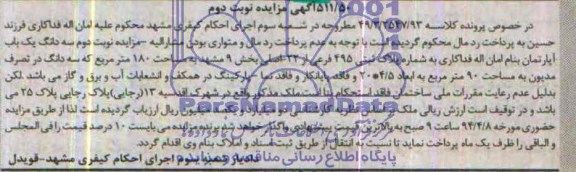 ۵۱۱/۵۰ آگهی مزایده نوبت دوم
در خصوص پرونده کلاسه ۴۹/۳/۳۵۴۷/۹۳ مطروحه در شعبه سوم اجرای احکام کیفری مشهد محکوم علیه امان اله فداکاری فرزند
حسین به پرداخت رد مال محکوم گردیده است با توجه به عدم پرداخت رد مال و متواری بودن مشارالیه -مزایده نوبت دوم سه دانگ یک باب
آپارتمان بنام امان اله فداکاری به شماره پلاک ثبتی ۴۹۵ فرعی از ۲۳ اصلی بخش ۹ مشهد به مساحت ۱۸۰ متر مربع که سه دانگ در تصرف
مدیون به مساحت ۹۰ متر مربع به ابعاد ۲۰*۴/۵ و فاقد بایانکار و فاقد نما -پارکینگ در همکف و انشعابات آب و برق و گاز می باشد لکن
بدلیل عدم رعایت مقررات ملی ساختمان فاقد استحکام بنا است ملک مذکور واقع در شهرک اقدسیه ۱۳(رجایی)پلاک رجایی پلاک ۲۵ می
باشد و در توقیف است ارزش ریالی ملک میلیون ریال ارزیاب گردیده است لذا از طریق مزایده
حضوری مورخه ۹۴/۴/۸ ساعت ۹ صبح به بالاترین قیمت پیشنهادی واگذار خواهد شد برنده مزایده می بایست ۱۰ درصد قیمت رافی المجلس
و الباقی را ظرف یک ماه پرداخت نماید تا نسبت به انتقال از طریق ثبت اسناد و املاک بنام وی اقدام گردد.
دادیار شعبه سوم اجرای احکام کیفری مشهد-قویدل
ParsNamadData
پایگاه اطلاع رسانی مناقصه و مزایده